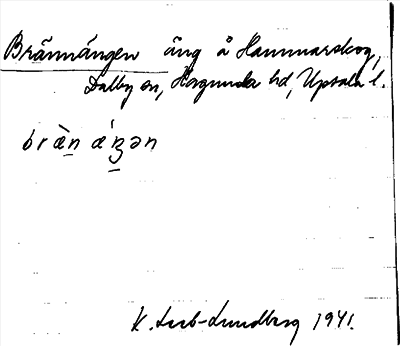 Brännängen äng å Hammarskog,
Dalby sn, Hagunda hd, Uppsala l.
bræ̀n ǽŋən
K. Leib-Lundberg 1941.